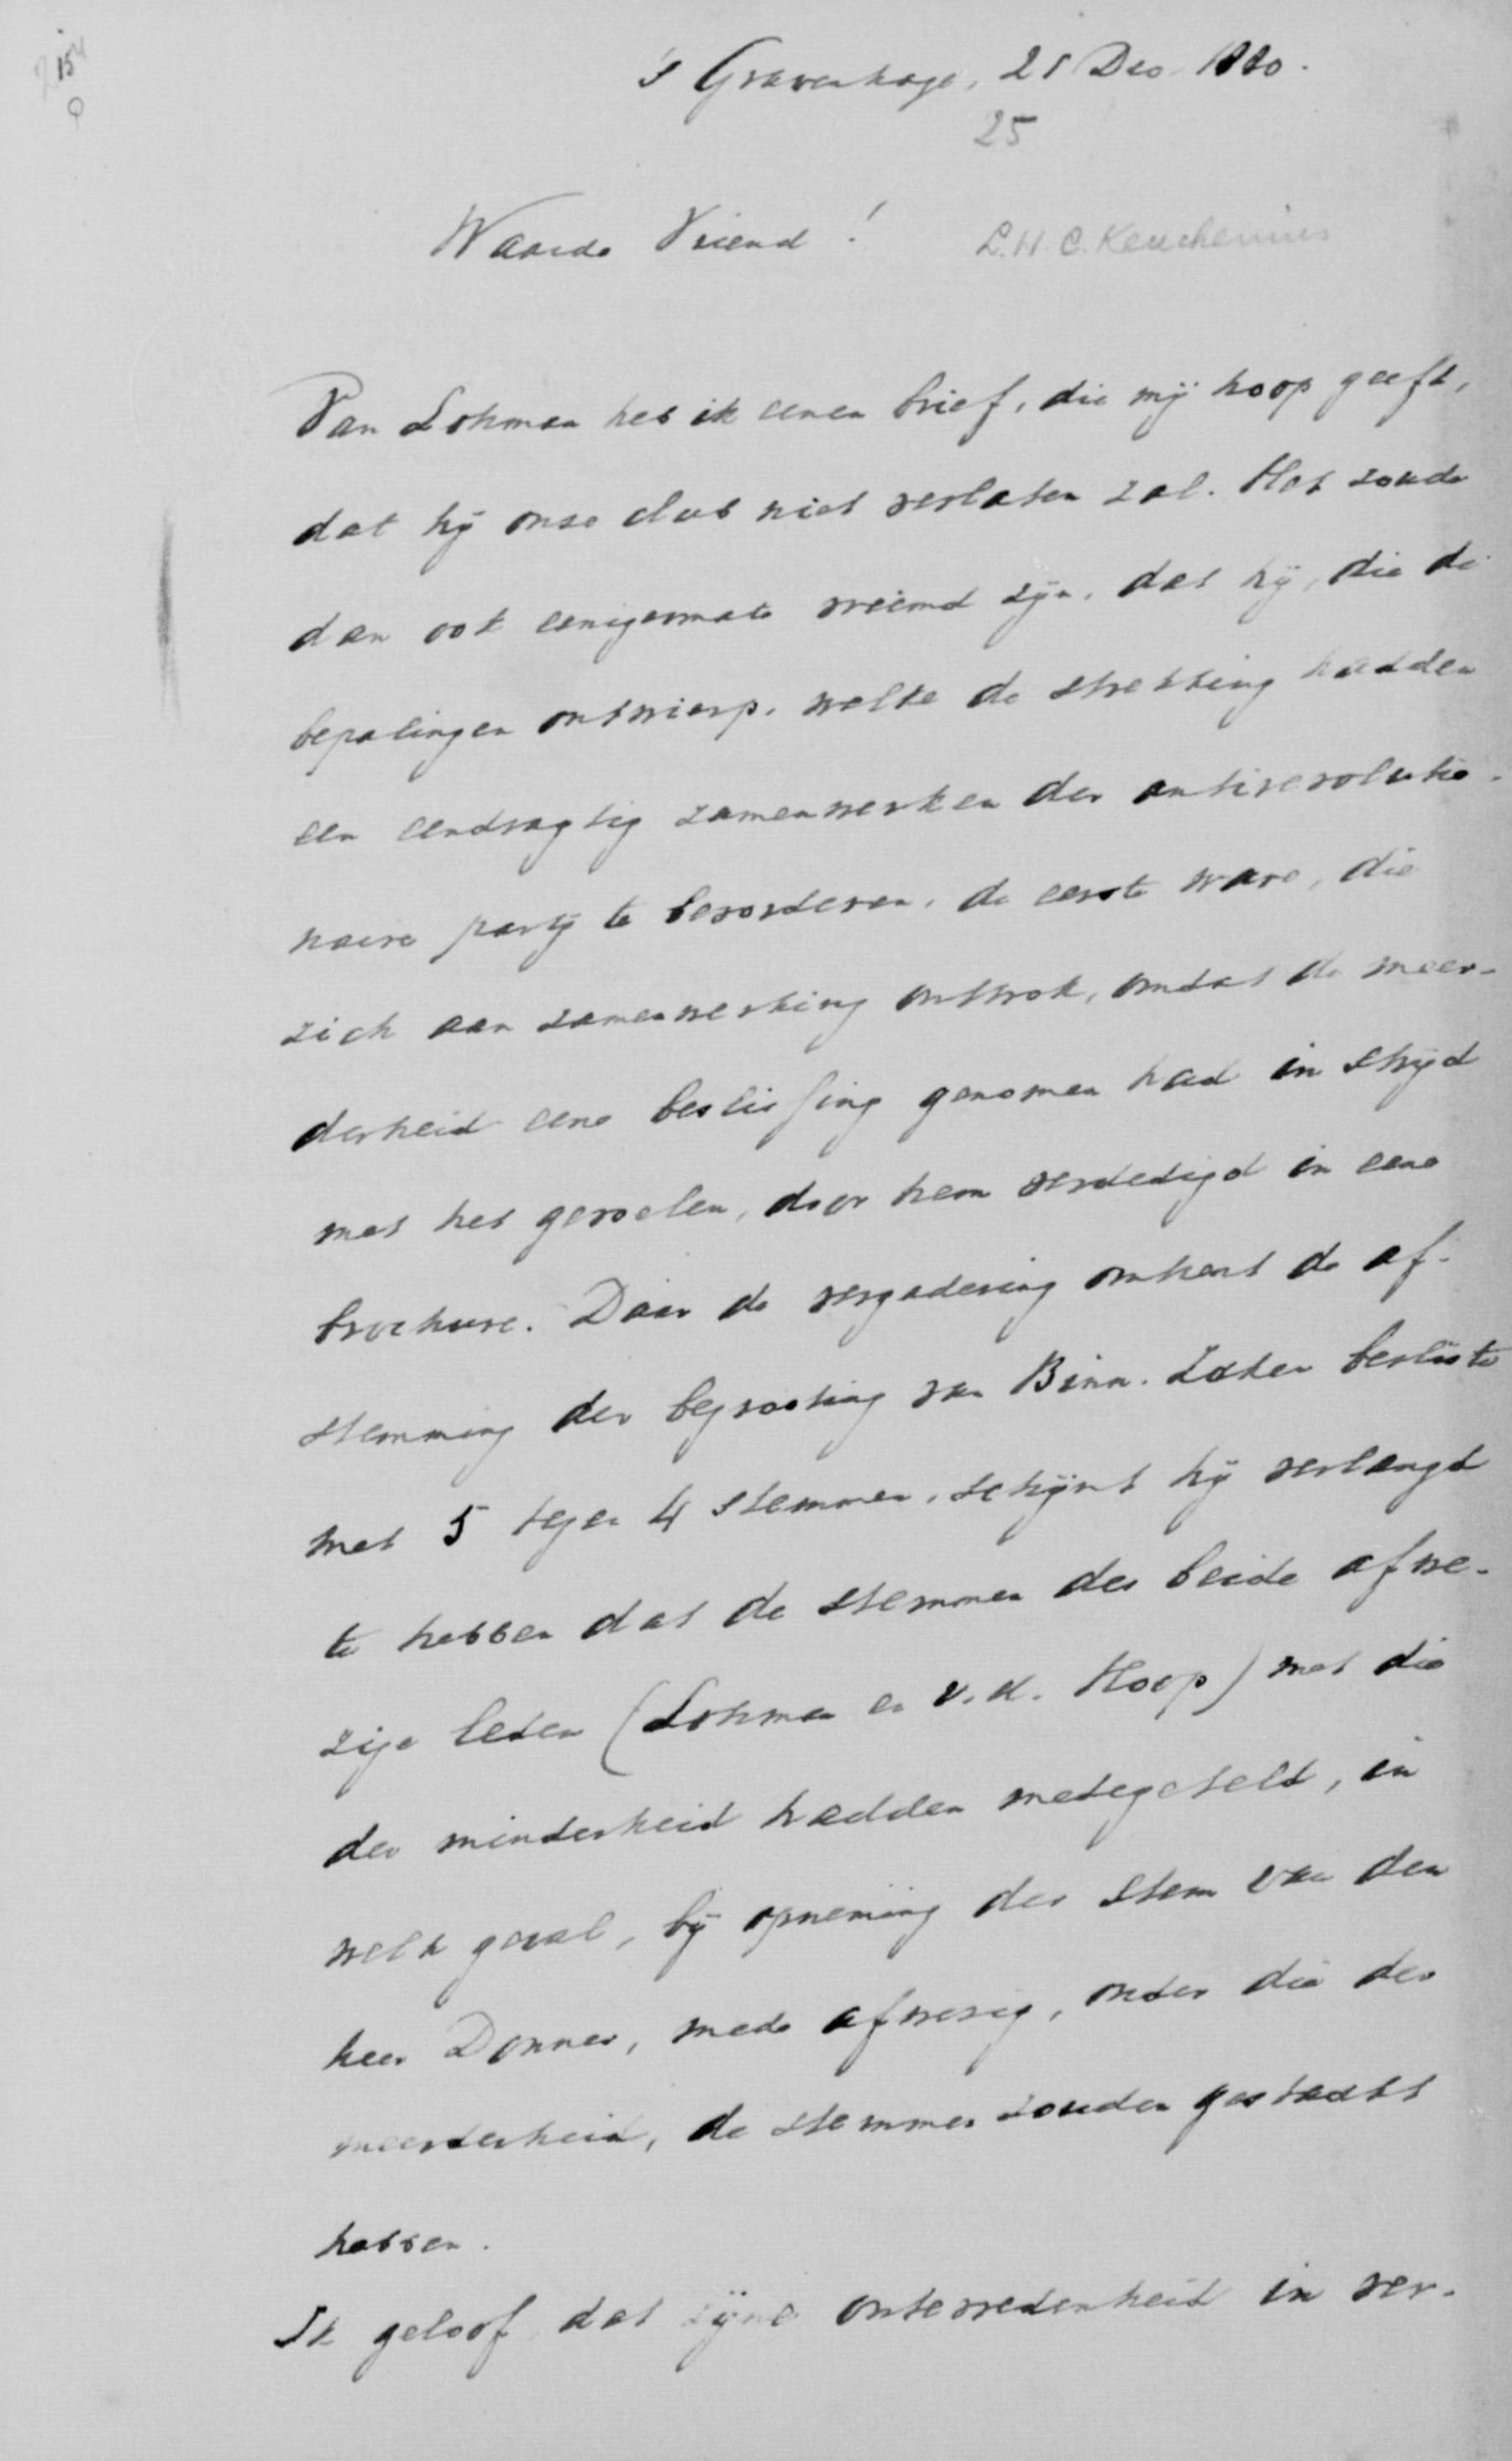 's Gravenhage, 25 Dec. 1880.
25
Waarde Vriend!
L.W.C. Keuchenius
Van Lohman heb ik eenen brief, die mij hoop geeft,
dat hij onze club niet verlaten zal. Het zoude
dan ook eenigermate vreemd zijn, dat hij, die de
bepalingen ontwierp, welke de strekking hadden
een eendragtig zamenwerken der antirevolutio-
naire partij te bevorderen, de eerste ware, die
zich aan zamenwerking onttrok, omdat de meer-
derheid eene beslissing genomen had in strijd
met het gevoelen, door hem verdedigd in eene
brochure. Daar de vergadering omtrent de af-
stemming der begrooting van Binn. Zaken besliste
met 5 tegen 4 stemmen, schijnt hij verlangd
te hebben dat de stemmen der beide afwe-
zige leden (Lohman en v.d. Hoop) met die
der minderheid hadden medegeteld, in
welk geval, bij opneming der stem van den
heer Donner, mede afwezig, onder die der
meerderheid, de stemmen zouden gestaakt
hebben.
Ik geloof, dat zijne ontevredenheid in ver-